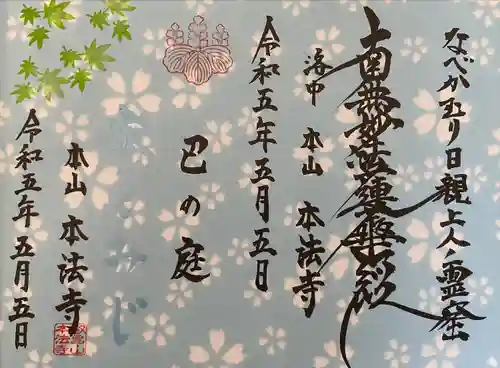 なべかむり日親上人霊発
南無妙法蓮華経
洛中 本山 本法寺
令和五年五月五日
巴の庭
本山 本法寺
令和五年五月五日